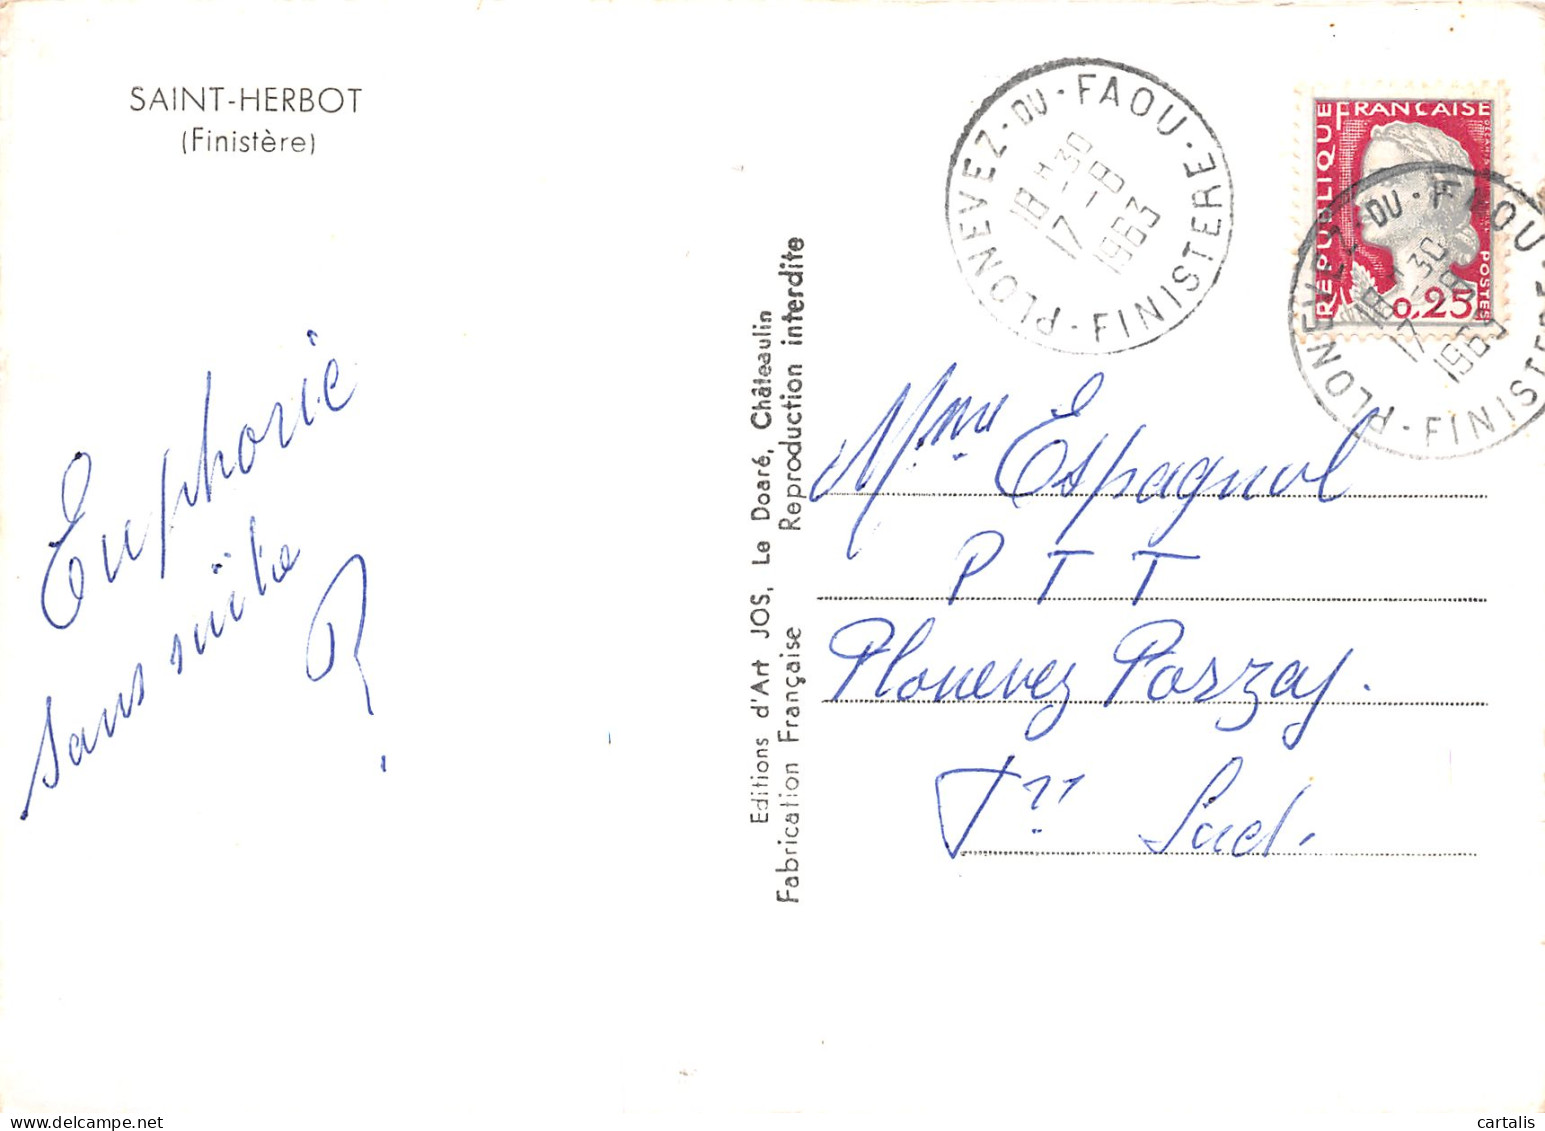 SAINT-HERBOT
(Finistère)
Euphorie
sans
R.
Editions d'Art JOS, Le Doaré, Châteaulin
Fabrication Française Reproduction interdite
PLONEVEZ-DU-FAOU-FINISTERE
18 H 30
17 -8
1963
REPUBLIQUE FRANÇAISE
POSTES
0,25
PLONEVEZ-DU-FAOU-FINISTERE
18 H 30
17 -8
1963
Mme Espagnol
P T T
Plonevez Porzay.
Sud.
cartalis